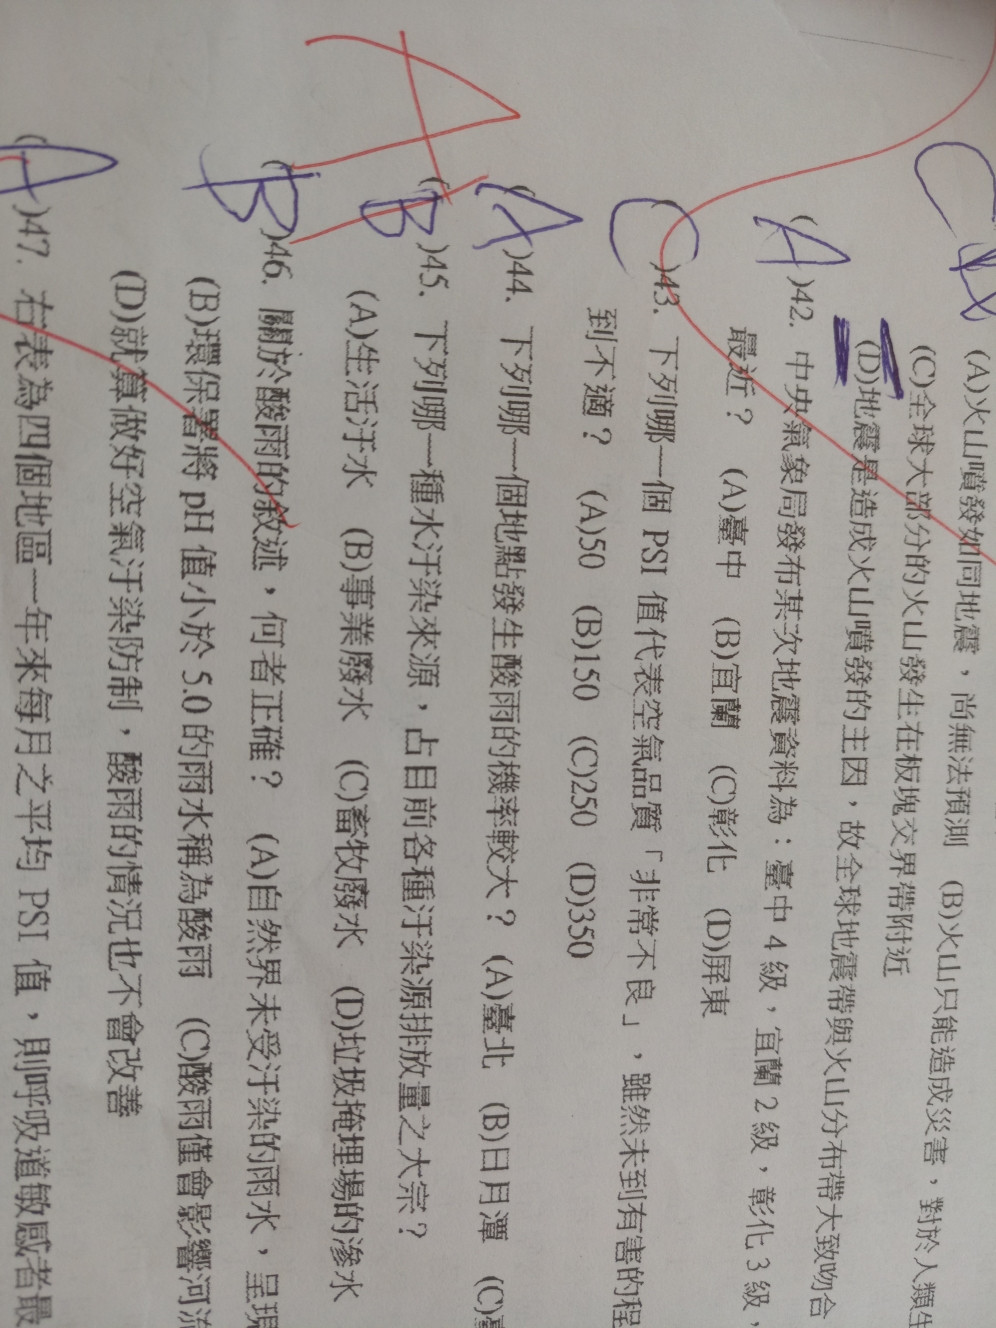 (A)火山噴發如同地震，尚無法預測 (B)火山只能造成災害，對於人類生
C
(C)全球大部分的火山發生在板塊交界帶附近
(D)地震是造成火山噴發的主因，故全球地震帶與火山分布帶大致吻合
(A)42. 中央氣象局發布某次地震資料為：臺中 4 級，宜蘭 2 級，彰化 3 級，
最近？ (A)臺中 (B)宜蘭 (C)彰化 (D)屏東
(C)43. 下列哪一個 PSI 值代表空氣品質「非常不良」，雖然未到有害的程
到不適？ (A)50 (B)150 (C)250 (D)350
(A)44. 下列哪一個地點發生酸雨的機率較大？ (A)臺北 (B)日月潭 (C)
A
(B)45. 下列哪一種水汙染來源，占目前各種汙染源排放量之大宗？
(A)生活汙水 (B)事業廢水 (C)畜牧廢水 (D)垃圾掩埋場的滲水
(B)46. 關於酸雨的敘述，何者正確？ (A)自然界未受汙染的雨水，呈現
(B)環保署將 pH 值小於 5.0 的雨水稱為酸雨 (C)酸雨僅會影響河流
(D)就算做好空氣汙染防制，酸雨的情況也不會改善
(A)47. 右表為四個地區一年來每月之平均 PSI 值，則呼吸道敏感者最